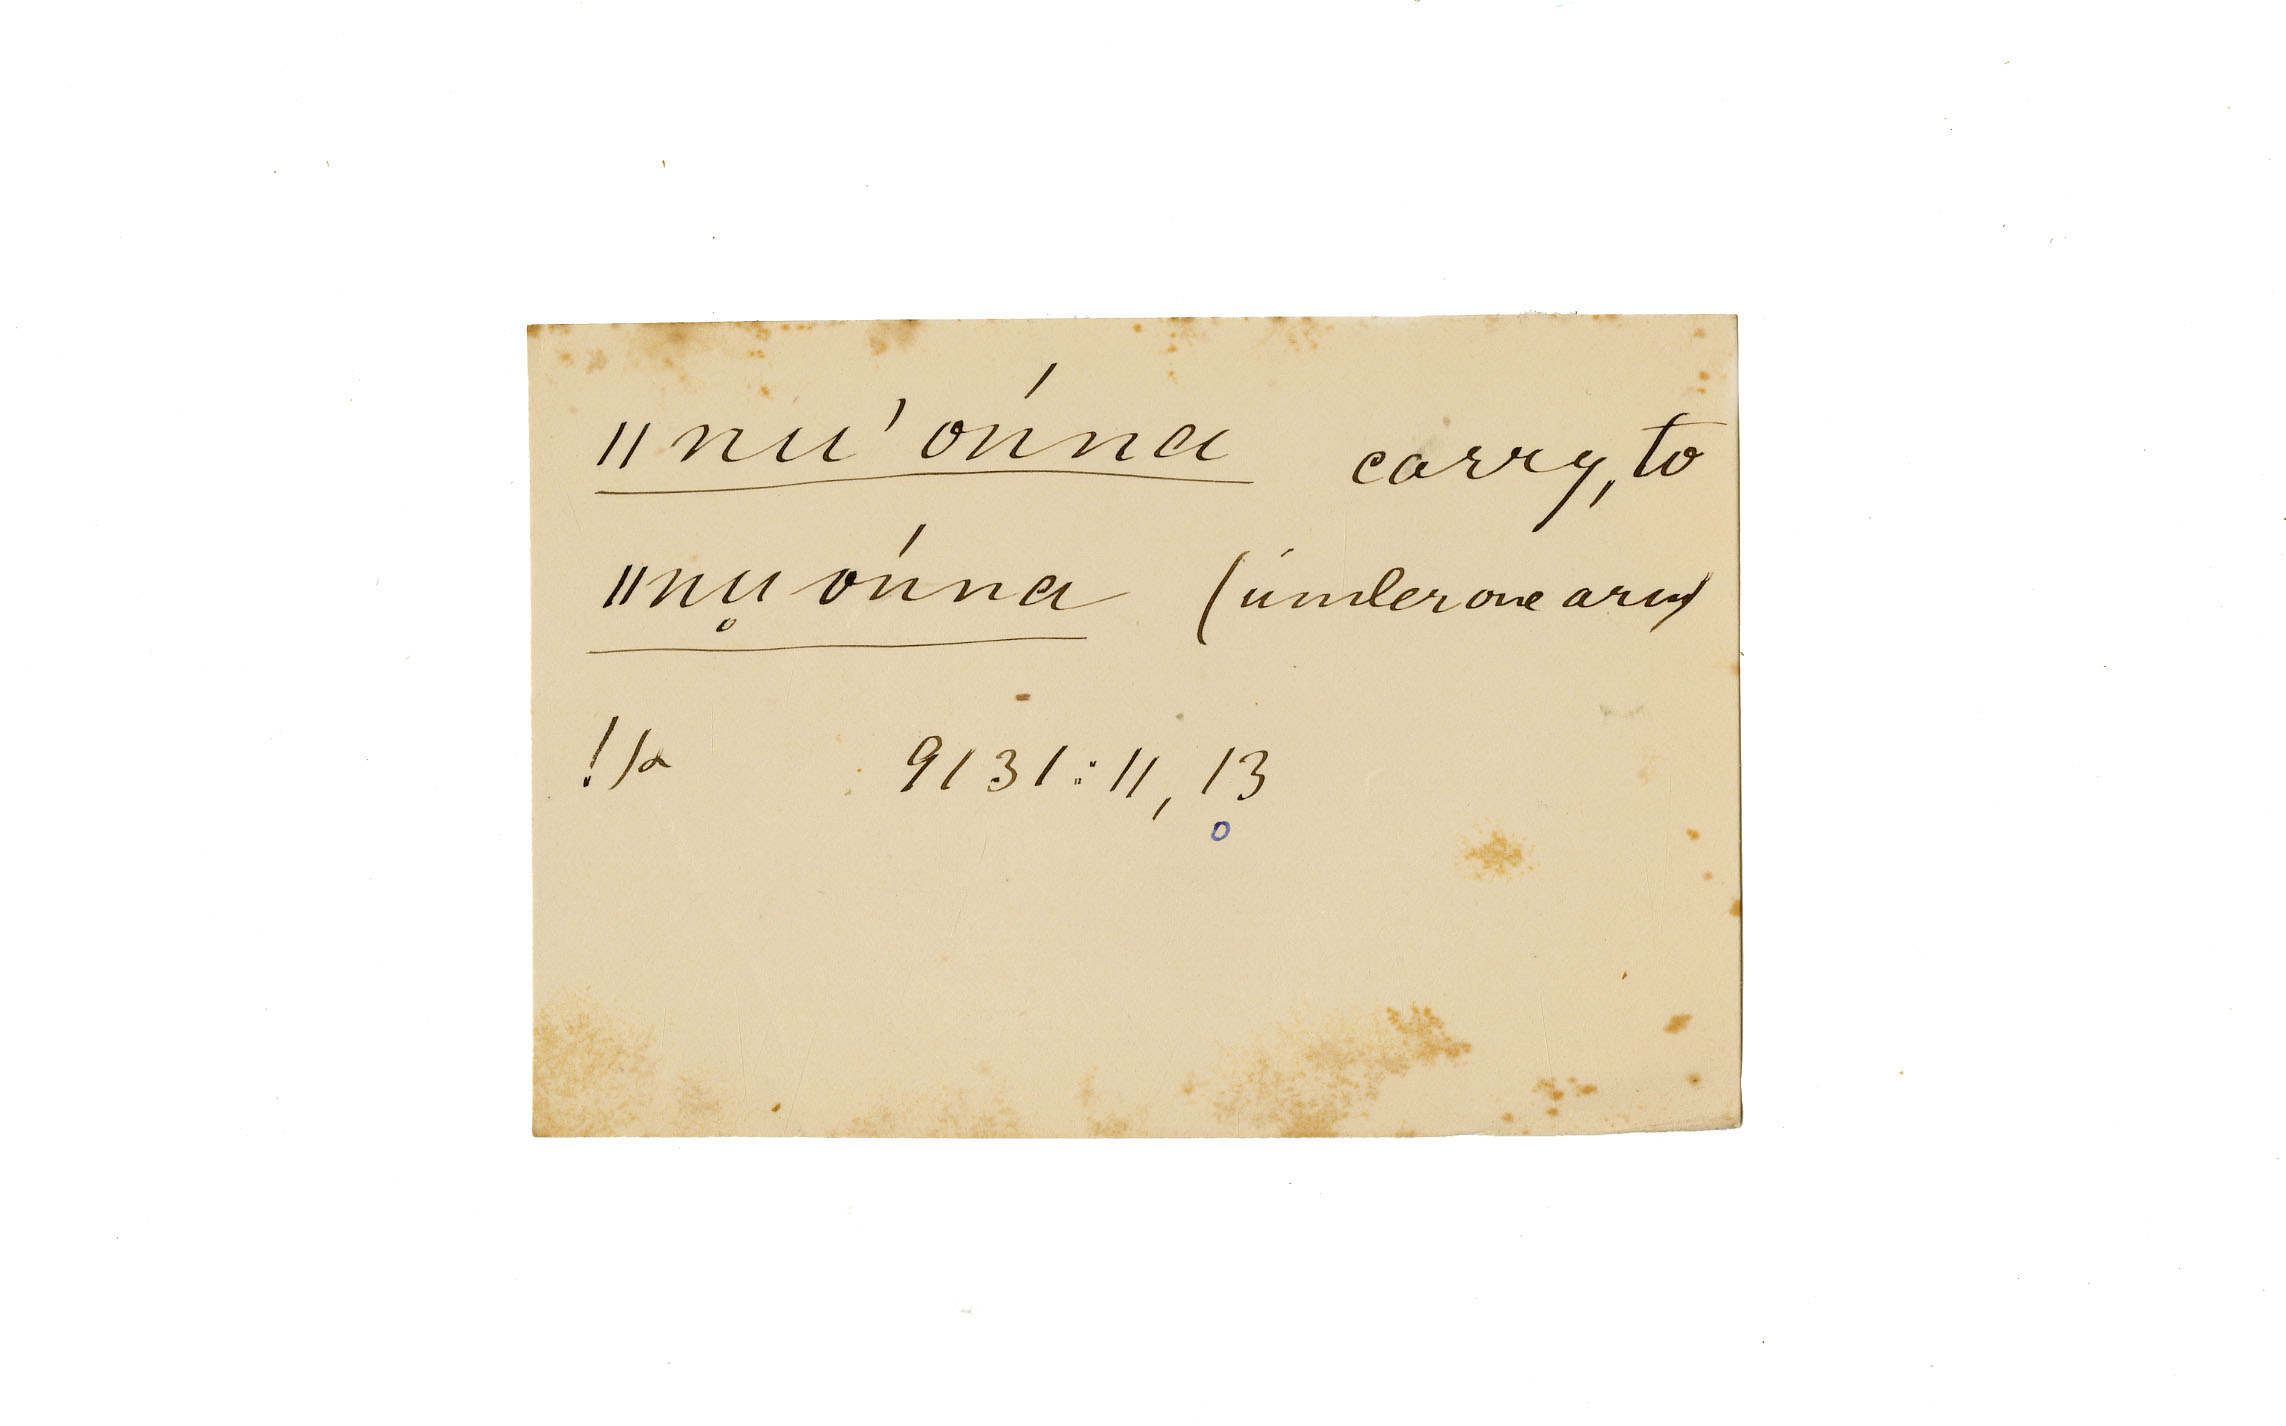 ‖nu'óu̯nna carry, to
‖nu̥óu̯nna (under one arm)
!k 9131:11, 13